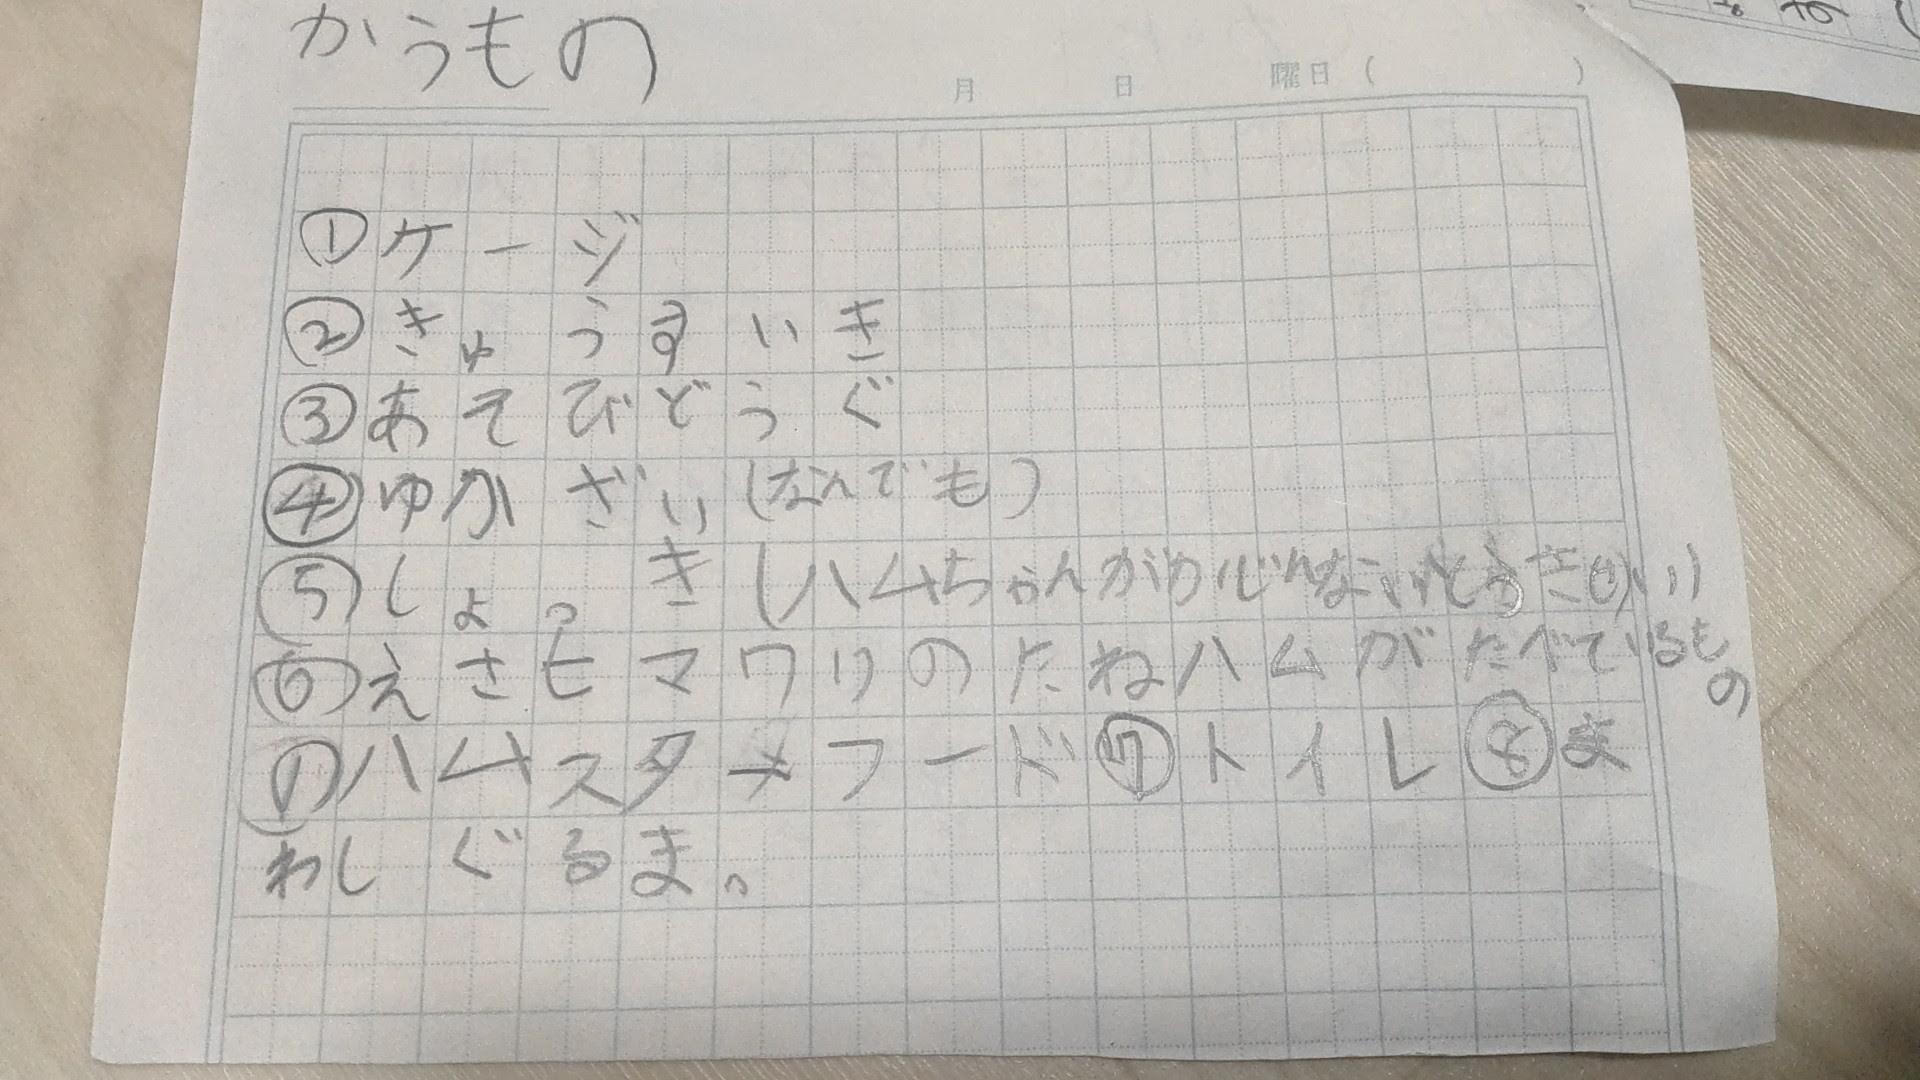 かうもの
月 日 曜日( )
①ケージ
②きゅうすいき
③あそびどうぐ
④ゆかざい(なんでも)
⑤しょっき(ハムちゃんが
⑥えさヒマワリのたねハムがたべているもの
のハムスターフード⑦トイレ⑧ま
わしぐるま。